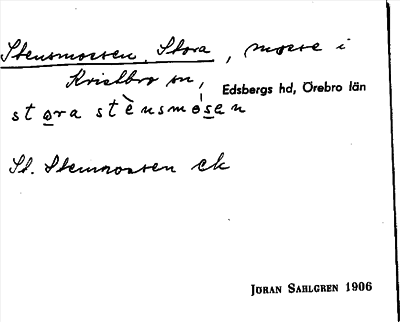 Stensmossen, Stora, mosse i
Kvistbro sn, Edsbergs hd, Örebro län
stora stènsmósen
St. Stensmossen ek
JÖRAN SAHLGREN 1906